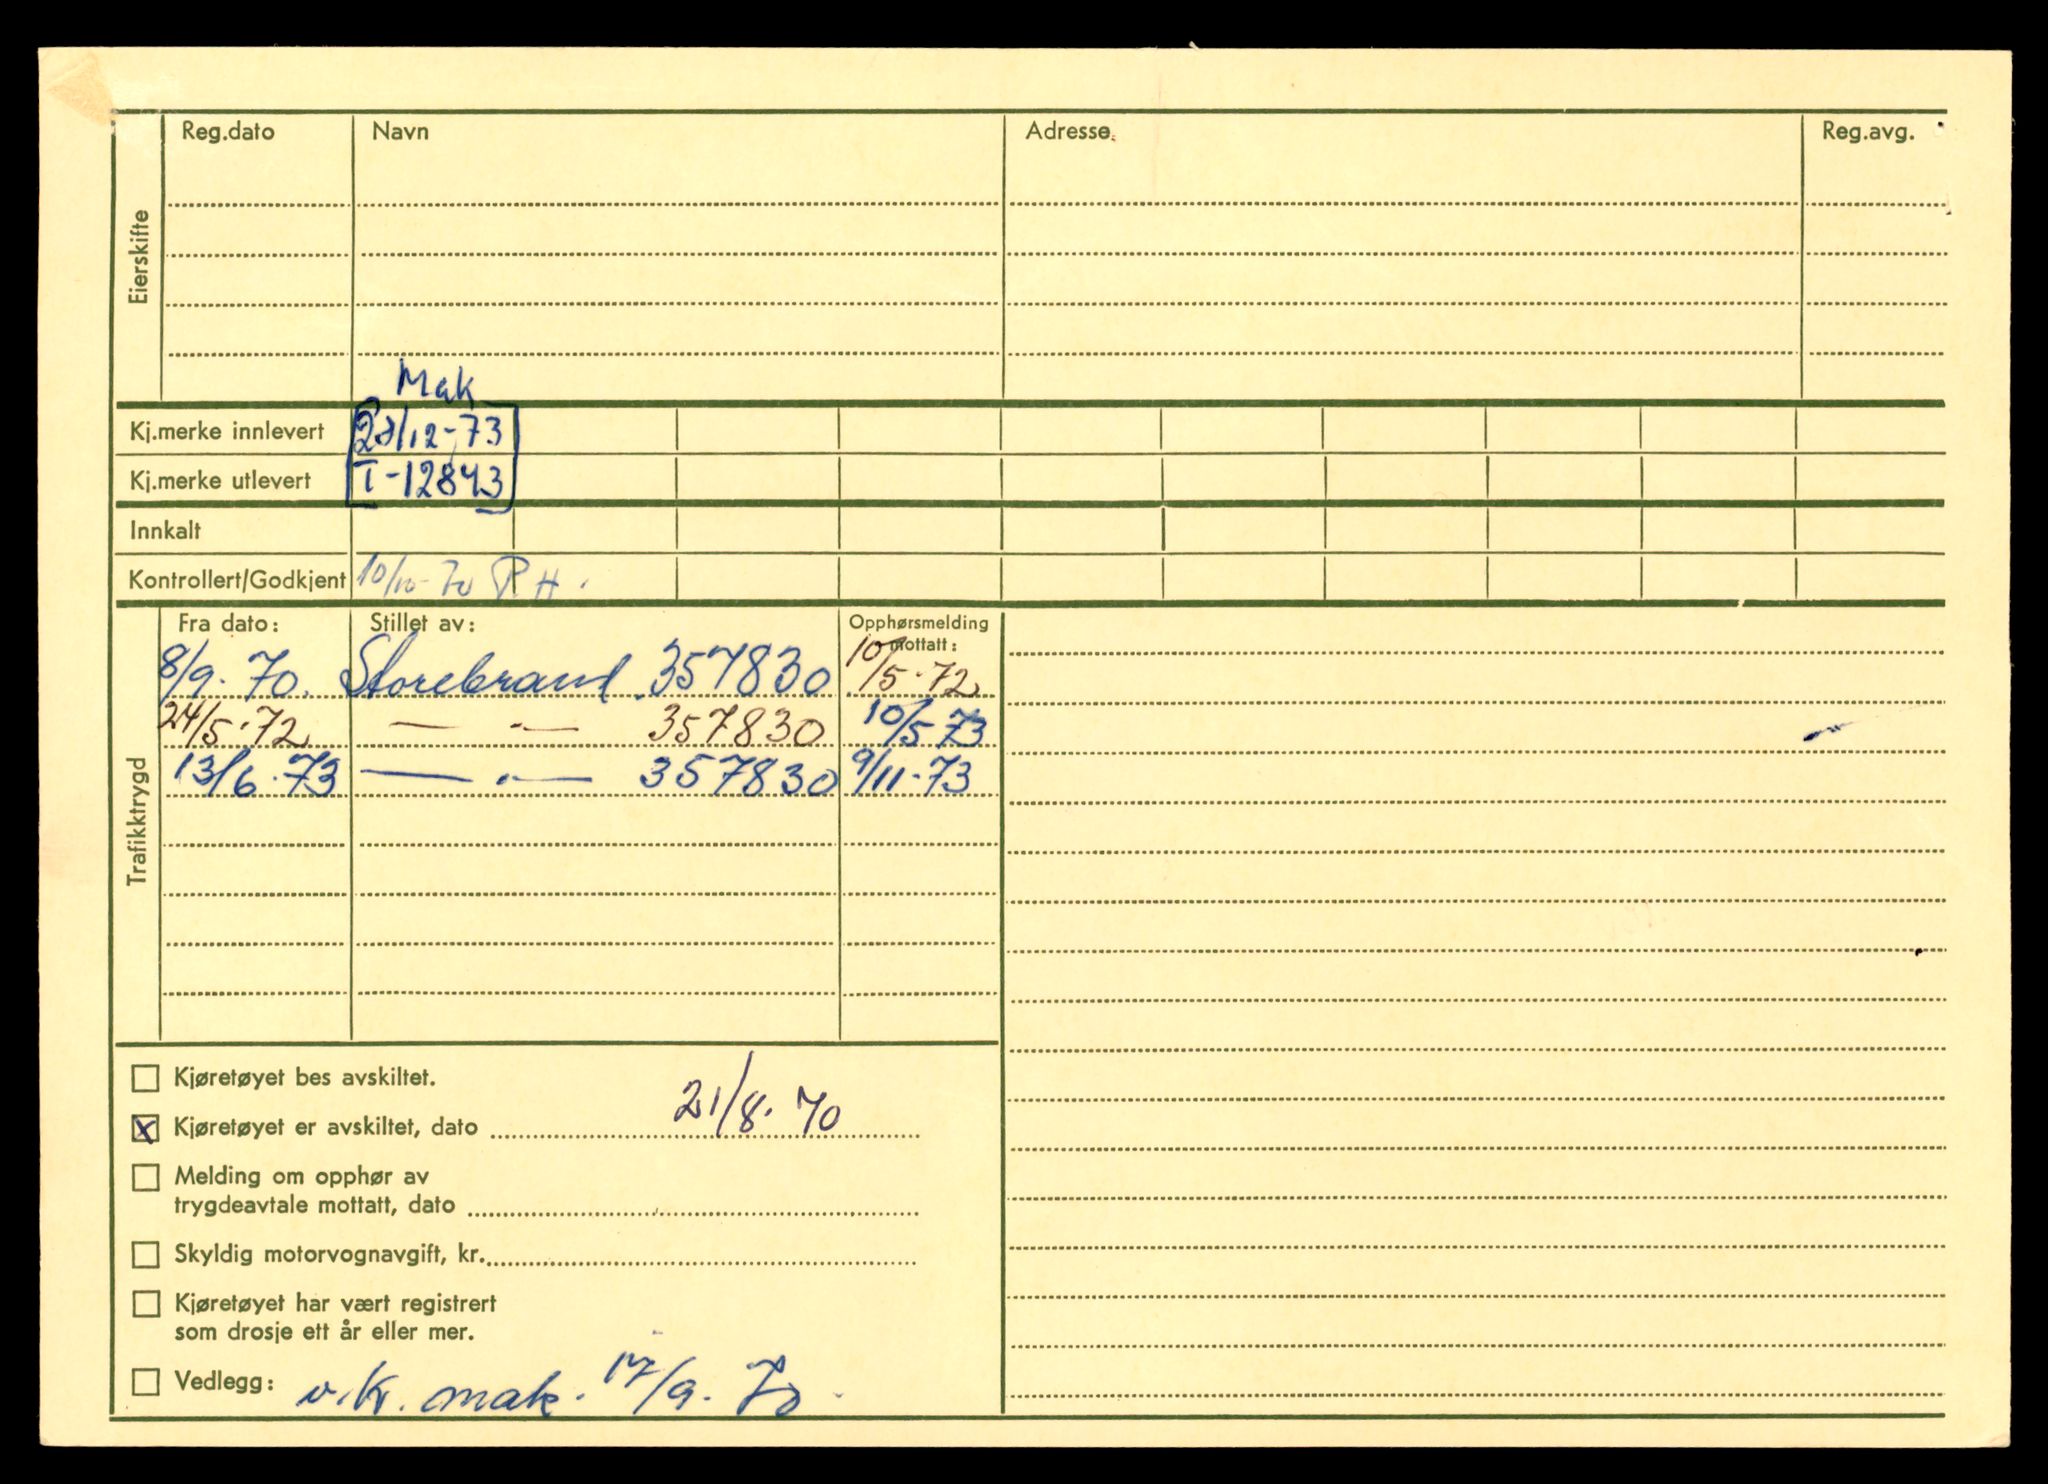 Eierskifte
Reg.dato Navn Adresse Reg.avg.
Mak
Kj.merke innlevert 27/12-73
Kj.merke utlevert T-12843
Innkalt
Kontrollert/Godkjent 10/10-70 P.H.
Trafikktrygd
Fra dato: Stillet av: Opphørsmelding mottatt:
8/9.70. Storebrand 357830 10/5.72
24/5.72 — " — 357830 10/5 73
13/6.73 — " — 357830 9/11.73
Kjøretøyet bes avskiltet.
x Kjøretøyet er avskiltet, dato 21/8.70
Melding om opphør av
trygdeavtale mottatt, dato
Skyldig motorvognavgift, kr.
Kjøretøyet har vært registrert
som drosje ett år eller mer.
Vedlegg: v.kr. mak. 17/9.70.